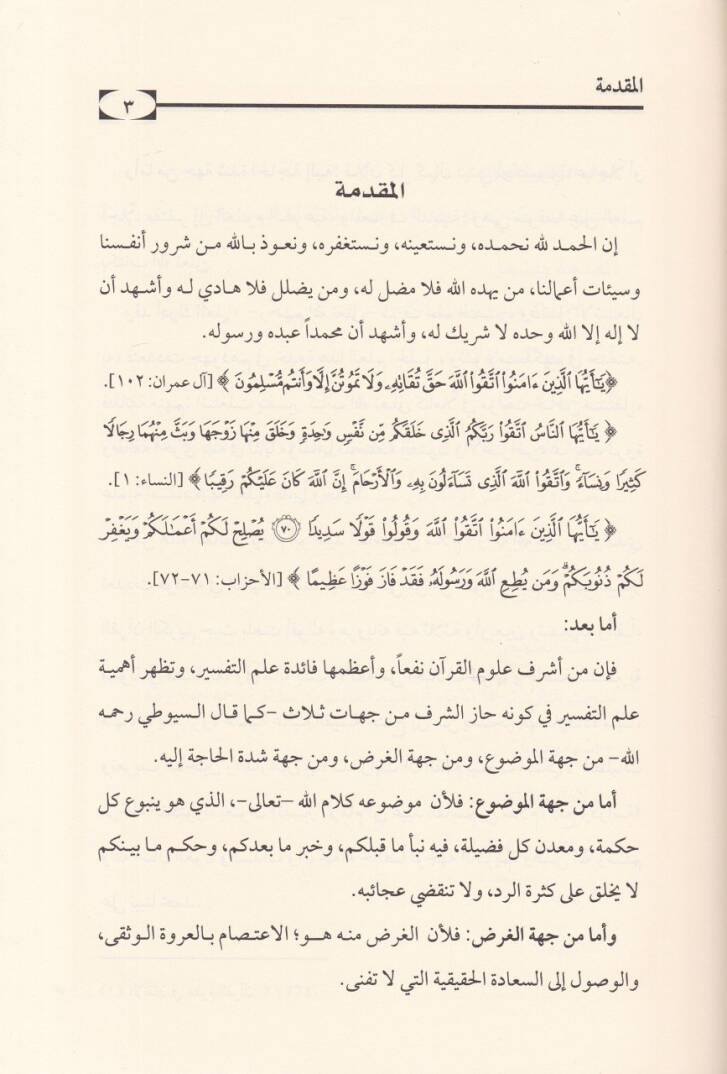 المقدمة
٣
المقدمة
إن الحمد لله نحمده، ونستعينه، ونستغفره، ونعوذ بالله من شرور أنفسنا
وسيئات أعمالنا، من يهده الله فلا مضل له، ومن يضلل فلا هادي له وأشهد أن
لا إله إلا الله وحده لا شريك له، وأشهد أن محمداً عبده ورسوله.
﴿يَٰٓأَيُّهَا ٱلَّذِينَ ءَامَنُوا۟ ٱتَّقُوا۟ ٱللَّهَ حَقَّ تُقَاتِهِۦ وَلَا تَمُوتُنَّ إِلَّا وَأَنتُم مُّسْلِمُونَ ﴾ [آل عمران: ١٠٢].
﴿ يَٰٓأَيُّهَا ٱلنَّاسُ ٱتَّقُوا۟ رَبَّكُمُ ٱلَّذِى خَلَقَكُم مِّن نَّفْسٍ وَٰحِدَةٍ وَخَلَقَ مِنْهَا زَوْجَهَا وَبَثَّ مِنْهُمَا رِجَالًا
كَثِيرًا وَنِسَآءً ۚ وَٱتَّقُوا۟ ٱللَّهَ ٱلَّذِى تَسَآءَلُونَ بِهِۦ وَٱلْأَرْحَامَ ۚ إِنَّ ٱللَّهَ كَانَ عَلَيْكُمْ رَقِيبًا ﴾ [النساء: ١].
﴿ يَٰٓأَيُّهَا ٱلَّذِينَ ءَامَنُوا۟ ٱتَّقُوا۟ ٱللَّهَ وَقُولُوا۟ قَوْلًا سَدِيدًا ٧٠ يُصْلِحْ لَكُمْ أَعْمَٰلَكُمْ وَيَغْفِرْ
لَكُمْ ذُنُوبَكُمْ ۗ وَمَن يُطِعِ ٱللَّهَ وَرَسُولَهُۥ فَقَدْ فَازَ فَوْزًا عَظِيمًا ﴾ [الأحزاب: ٧١-٧٢].
أما بعد:
فإن من أشرف علوم القرآن نفعاً، وأعظمها فائدة علم التفسير، وتظهر أهمية
علم التفسير في كونه حاز الشرف من جهات ثلاث –كما قال السيوطي رحمه
الله– من جهة الموضوع، ومن جهة الغرض، ومن جهة شدة الحاجة إليه.
أما من جهة الموضوع: فلأن موضوعه كلام الله –تعالى–، الذي هو ينبوع كل
حكمة، ومعدن كل فضيلة، فيه نبأ ما قبلكم، وخبر ما بعدكم، وحكم ما بينكم
لا يخلق على كثرة الرد، ولا تنقضي عجائبه.
وأما من جهة الغرض: فلأن الغرض منه هو؛ الاعتصام بالعروة الوثقى،
والوصول إلى السعادة الحقيقية التي لا تفنى.